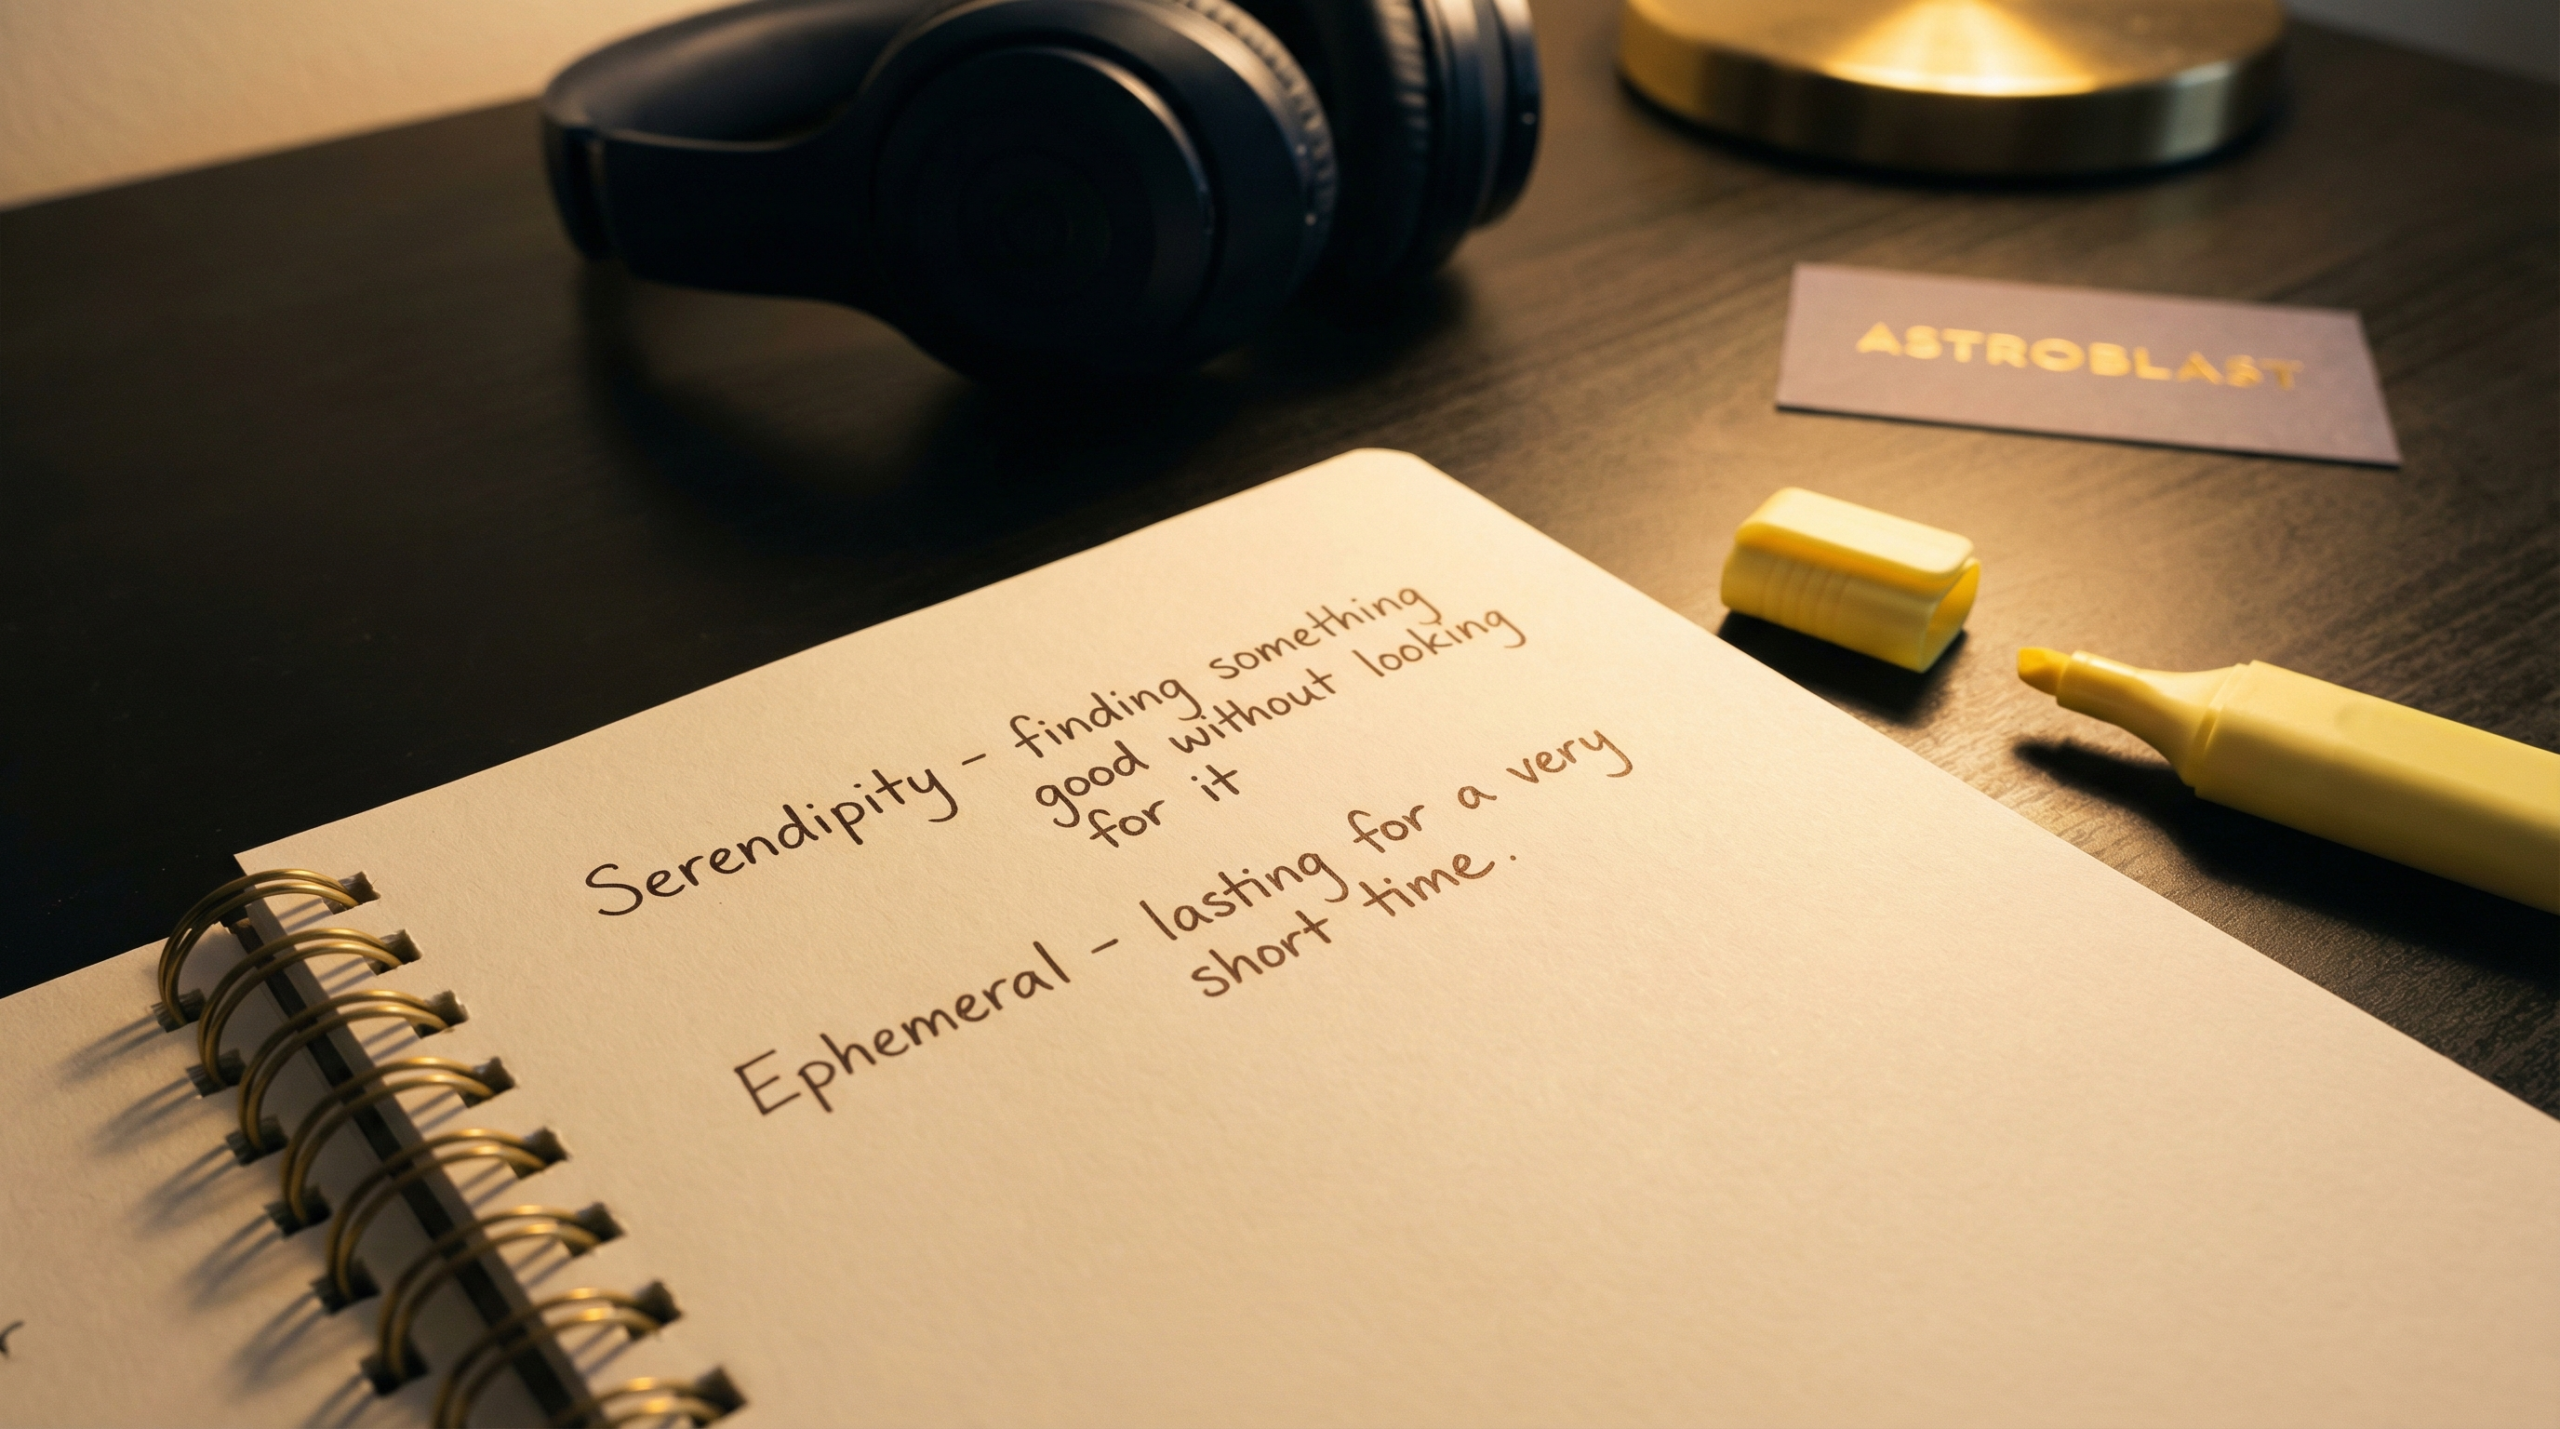 ASTROBLAST
Serendipity - finding something
good without looking
for it
Ephemeral - lasting for a very
short time.